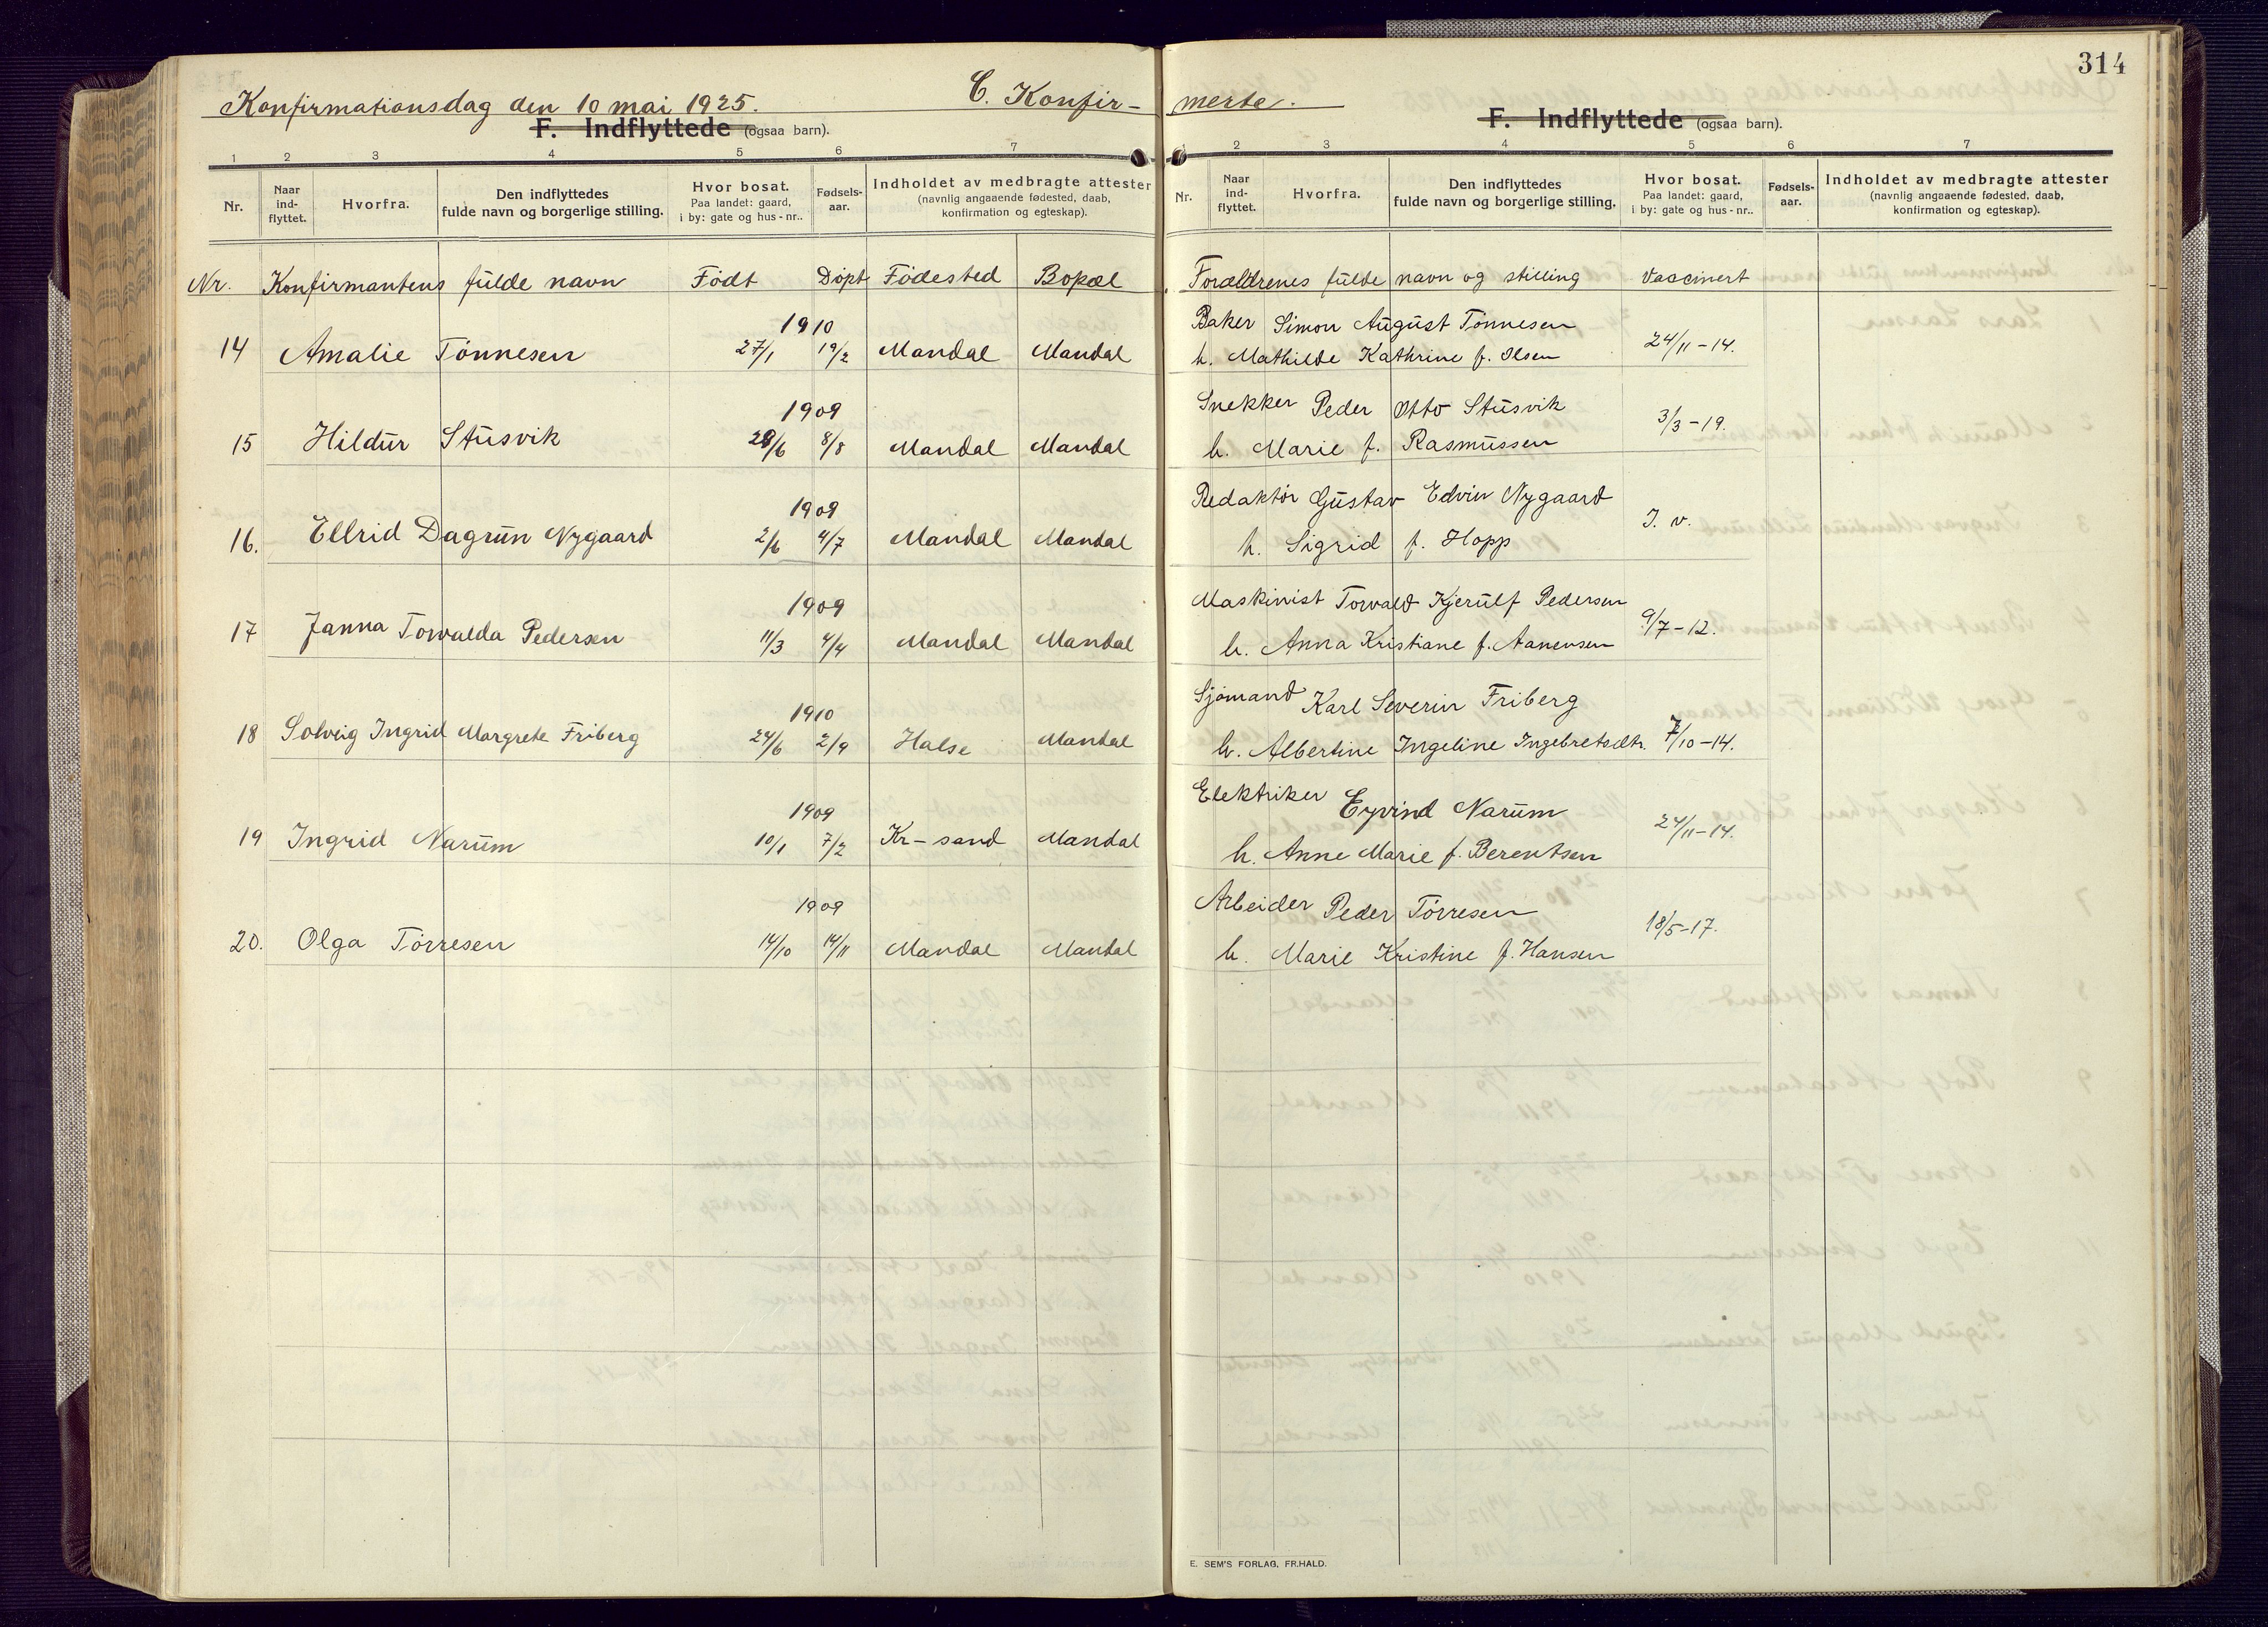 314
Konfirmationsdag den 10 mai 1925. C. Konfir- merte.
F. Indflyttede (ogsaa barn). F. Indflyttede (ogsaa barn).
1 2 3 4 5 6 7 1 2 3 4 5 6 7
Nr. Naar ind-flyttet. Hvorfra. Den indflyttedes fulde navn og borgerlige stilling. Hvor bosat. Paa landet: gaard, i by: gate og hus-nr.. Fødsels-aar. Indholdet av medbragte attester (navnlig angaaende fødested, daab, konfirmation og egteskap).
Nr. Naar ind-flyttet. Hvorfra. Den indflyttedes fulde navn og borgerlige stilling. Hvor bosat. Paa landet: gaard, i by: gate og hus-nr.. Fødsels-aar. Indholdet av medbragte attester (navnlig angaaende fødested, daab, konfirmation og egteskap).
Nr. Konfirmantens fulde navn Født Døpt Fødested Bopæl Forældrenes fulde navn og stilling Vaccinert
1910 Baker Simon August Tönnesen
14 Amalie Tönnesen 27/1 19/2 Mandal Mandal h. Mathilde Kathrine f. Olsen 24/11-14.
1909 Snekker Peder Otto Stusvik
15 Hildur Stusvik 28/6 8/8 Mandal Mandal h. Marie f. Rasmussen 3/3-19.
1909 Redaktör Gustav Edvin Nygaard
16. Ellrid Dagrun Nygaard 2/6 4/7 Mandal Mandal h. Sigrid f. Hopp I. v.
1909 Maskinist Torvald Kjerulf Pedersen
17 Janna Torvalda Pedersen 11/3 4/4 Mandal Mandal h. Anna Kristiane f. Aanensen 9/7-12.
1910 Sjömand Karl Severin Friberg
18 Solveig Ingrid Margrete Friberg 24/6 2/9 Halse Mandal h. Albertine Ingeline Ingebretsdtr. 7/10-14.
1909 Elektriker Eyvind Narum
19 Ingrid Narum 10/1 7/2 Kr-sand Mandal h. Anne Marie f. Berentsen 24/11-14.
1909 Arbeider Peder Törresen
20. Olga Törresen 14/10 14/11 Mandal Mandal h. Marie Kristine f. Hansen 18/5-17.
E. SEM'S FORLAG, FR.HALD.